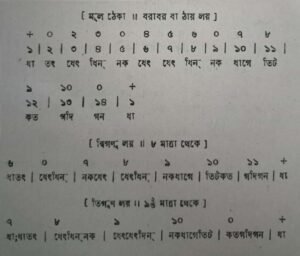 [ মূল ঠেকা ॥ বরাবর বা ঠায় লয় ]
+ ০ ২ ৩ ০ ৪ ৫ ৬ ০ ৭ ৮
১ | ২ | ৩ | ৪ | ৫ | ৬ | ৭ | ৮ | ৯ | ১০ | ১১ |
ধা তৎ ধেৎ ধিন্ নক ধেৎ ধেৎ ধিন্ নক ধাগে তিট
৯ ১০ ০ +
১২ | ১৩ | ১৪ | ১
কত গদি গন ধা
[ দ্বিগুণ লয় ॥ ৮ মাত্রা থেকে ]
৬ ০ ৭ ৮ ৯ ১০ ১১ +
ধাতৎ | ধেৎধিন্ | নকধেৎ | ধেৎধিন্ | নকধাগে | তিটকত | গদিগন | ধা
[ তিগুণ লয় ॥ মাত্রা থেকে ]
৭ ৮ ৯ ১০ ০ +
ধাঃধাতৎ | ধেৎধিন্নক | ধেৎধেৎধিন্ | নকধাগেতিট | কতগদিগন | ধা